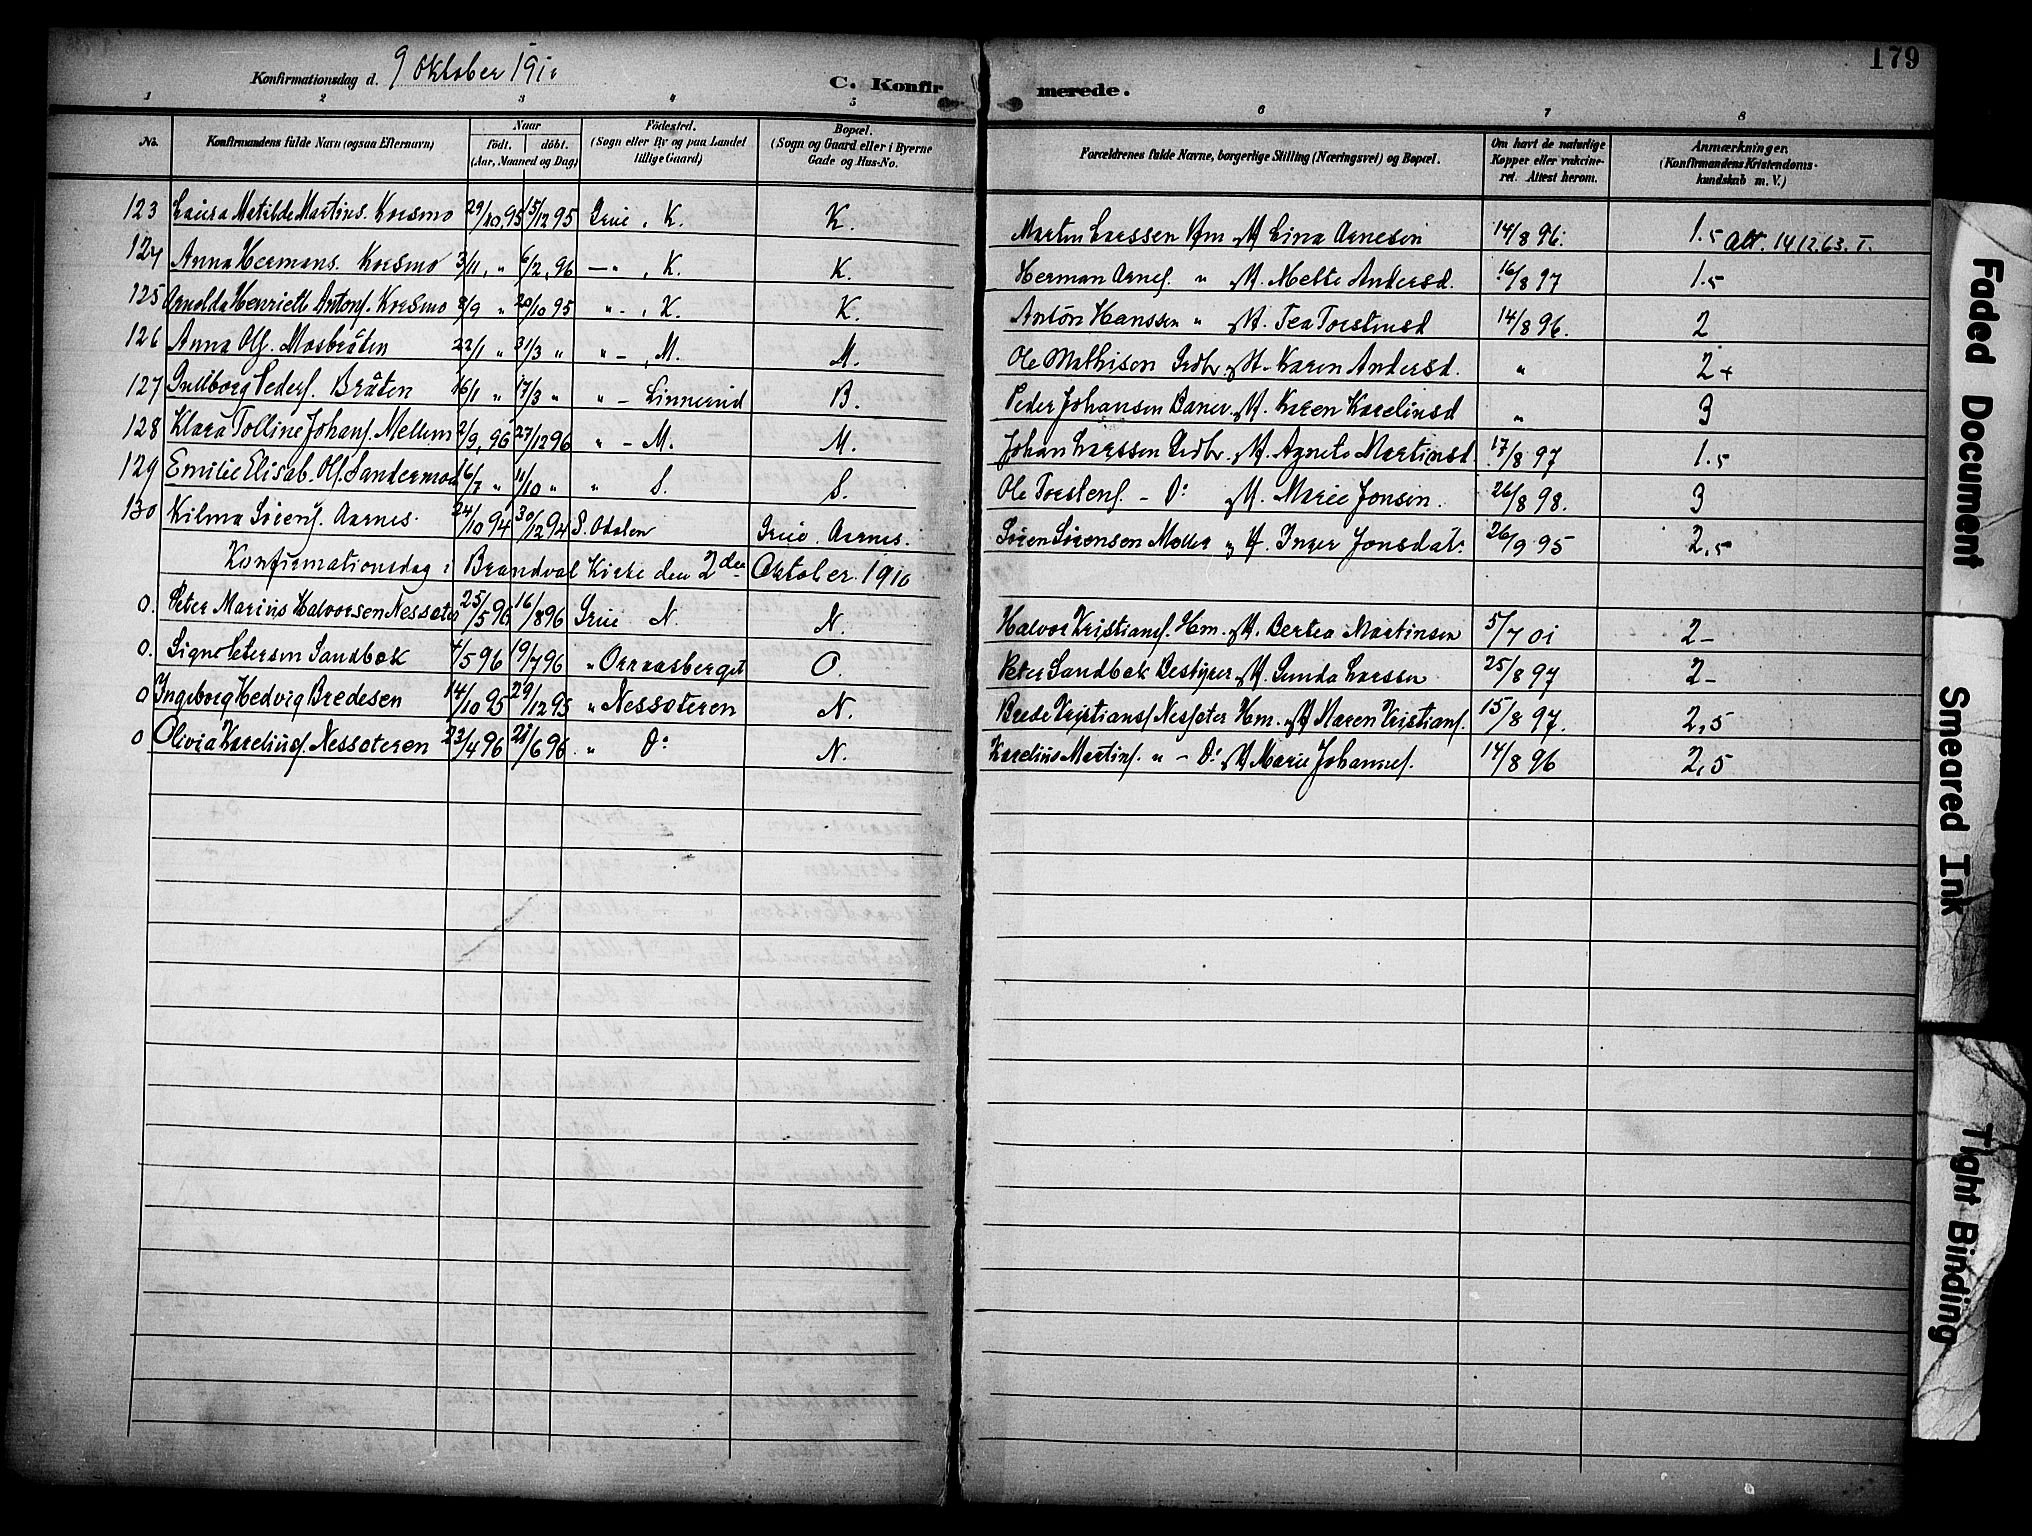 179
Konfirmationsdag d. 9 Oktober 1910
C. Konfirmerede.
1 2 3 4 5 6 7 8
No. Konfirmandens fulde Navn (ogsaa Efternavn) Naar født. døbt. (Aar, Maaned og Dag) Fødested. (Sogn eller By og paa Landet tillige Gaard) Bopæl. (Sogn og Gaard eller i Byerne Gade og Hus-No. Forældrenes fulde Navne, borgerlige Stilling (Næringsvei) og Bopæl. Om havt de naturlige Kopper eller vakcineret. Attest herom. Anmærkninger. (Konfirmandens Kristendomskundskab m. V.)
123 Laura Matilde Martins. Korsmo 29/10,95 15/12 95 Grue, K. K. Martin Larssen Hm. og H. Lina Arnesen 14/8 96. 1.5 Att. 14.12.63. T.
124 Anna Hermans. Korsmo 3/11, " 6/2, 96 — " , K. K. Herman Arnes. " og H. Mette Andersd. 16/8 97 1.5
125 Arnolda Henriette Antons. Korsmo 8/9 " 20/10 95 " - , K. K. Anton Hanssen " og H. Tea Torstensd 14/8 96. 2
126 Anna Ols. Mosbråten 22/1 " 31/3 " " — , M. M. Ole Mathisen Grdbr. og H. Karen Andersd. " 2+
127 Gullborg Peders. Bråten 16/1 " 17/3 " " — Linnerud B. Peder Johansen Baner. og H. Karen Karelinsd " 3
128 Klara Tolline Johans. Mellem 2/9, 96 27/12 96 " — M. M. Johan Larssen Grdbr. og H. Agnete Martinsd 17/8 97 1.5
129 Emilie Elisab. Ols. Sandermoen 16/7 " 11/10 " " S. S. Ole Torstens. — Do og H. Marie Jonsen. 26/8 98. 3
130 Kilma Sørens. Aarnes. 24/10 94 30/12 94 S. Odalen Grue. Aarnes. Søren Sørensen Møller og H. Inger Jonsdat. 26/9 95 2,5
Konfirmationsdag i Brandval Kirke den 2den Oktober 1910
0. Peter Marius Halvorsen Nessoter 25/5 96 16/8 96 Grue N. N. Halvor Kristians. Hm. og H. Bertea Martinsen 5/7 01 2-
0. Signe Petersen Sandbæk 4/5 96 19/7 96 " Orraasberget O. Peter Sandbæk Bestyrer og H. Gunda Larssen 25/8 97 2-
0 Ingeborg Hedvig Bredesen 14/10 95 29/12 95 " Nessoteren N. Brede Kristians. Nessoter Hm. og H Maren Kristians. 15/8 97. 2,5
0 Olivia Karelius. Nessoteren 23/4 96 21/6 96 " Do N. Karelius Martins. " — Do og H Marie Johannes. 14/8 96 2,5
Faded Document
Smeared Ink
Tight Binding